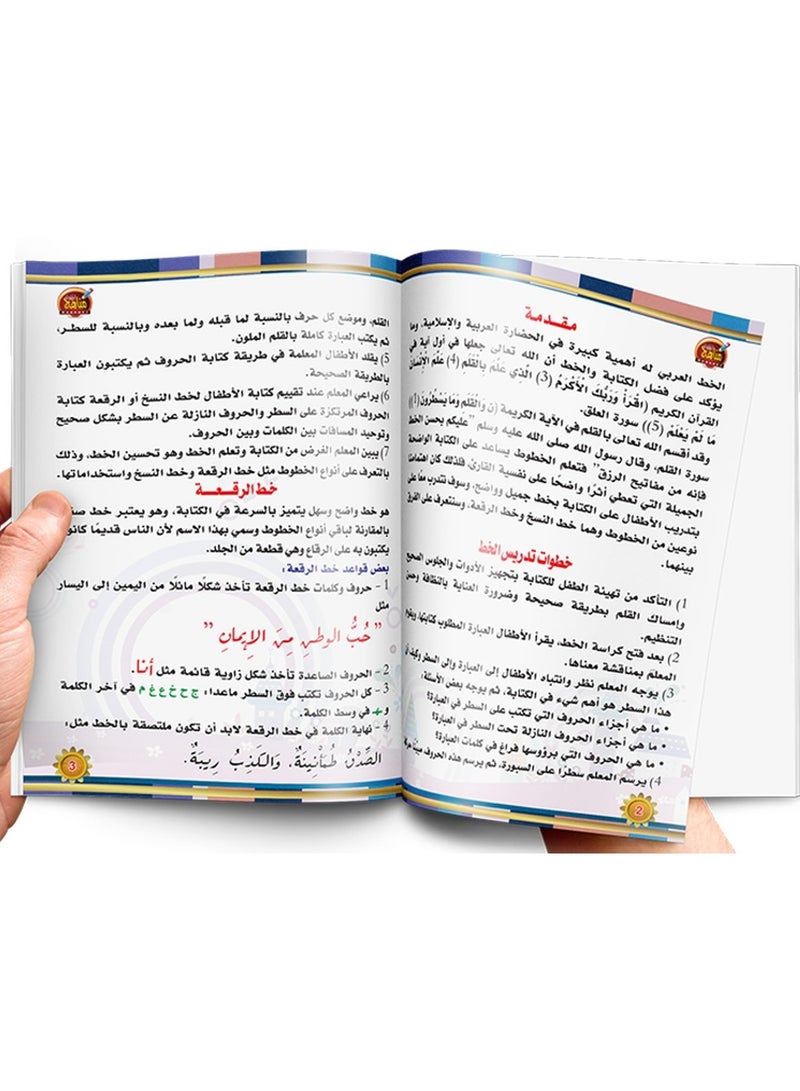 مقدمة
الخط العربي له أهمية كبيرة في الحضارة العربية والإسلامية، وما
يؤكد على فضل الكتابة والخط أن الله تعالى جعلها في أول آية في
القرآن الكريم (اقْرَأْ وَرَبُّكَ الْأَكْرَمُ (3) الَّذِي عَلَّمَ بِالْقَلَمِ (4) عَلَّمَ الْإِنْسَانَ
مَا لَمْ يَعْلَمْ (5)) سورة العلق.
وقد أقسم الله تعالى بالقلم في الآية الكريمة (ن وَالْقَلَمِ وَمَا يَسْطُرُونَ (1))
سورة القلم، وقال رسول الله صلى الله عليه وسلم "عليكم بحسن الخط
فإنه من مفاتيح الرزق" فتعلم الخطوط يساعد على الكتابة الواضحة
الجميلة التي تعطي أثرًا واضحًا على نفسية القارئ، فلذلك كان اهتمامنا
بتدريب الأطفال على الكتابة بخط جميل وواضح، وسوف نتدرب معًا على
نوعين من الخطوط وهما خط النسخ وخط الرقعة، وسنتعرف على الفرق
بينهما.
خطوات تدريس الخط
1) التأكد من تهيئة الطفل للكتابة بتجهيز الأدوات والجلوس الصحيح
وإمساك القلم بطريقة صحيحة وضرورة العناية بالنظافة وحسن
التنظيم.
2) بعد فتح كراسة الخط، يقرأ الأطفال العبارة المطلوب كتابتها، ويقوم
المعلم بمناقشة معناها.
3) يوجه المعلم نظر وانتباه الأطفال إلى العبارة وإلى السطر وكيف أن
هذا السطر هو أهم شيء في الكتابة، ثم يوجه بعض الأسئلة:
• ما هي أجزاء الحروف التي تكتب على السطر في العبارة؟
• ما هي أجزاء الحروف النازلة تحت السطر في العبارة؟
• ما هي الحروف التي برؤوسها فراغ في كلمات العبارة؟
4) يرسم المعلم سطرًا على السبورة، ثم يرسم هذه الحروف مبينًا حركة
2
القلم، وموضع كل حرف بالنسبة لما قبله ولما بعده وبالنسبة للسطر،
ثم يكتب العبارة كاملة بالقلم الملون.
5) يقلد الأطفال المعلمة في طريقة كتابة الحروف ثم يكتبون العبارة
بالطريقة الصحيحة.
6) يراعي المعلم عند تقييم كتابة الأطفال لخط النسخ أو الرقعة كتابة
الحروف المرتكزة على السطر والحروف النازلة عن السطر بشكل صحيح
وتوحيد المسافات بين الكلمات وبين الحروف.
7) يبين المعلم الغرض من الكتابة وتعلم الخط وهو تحسين الخط، وذلك
بالتعرف على أنواع الخطوط مثل خط الرقعة وخط النسخ واستخداماتها.
خط الرقعة
هو خط واضح وسهل يتميز بالسرعة في الكتابة، وهو يعتبر خط
بالمقارنة لباقي أنواع الخطوط وسمي بهذا الاسم لأن الناس قديمًا كانوا
يكتبون به على الرقاع وهي قطعة من الجلد.
بعض قواعد خط الرقعة:
1 - حروف وكلمات خط الرقعة تأخذ شكلًا مائلًا من اليمين إلى اليسار
مثل
"حُبُّ الوطنِ مِنَ الإِيمانِ"
2 - الحروف الصاعدة تأخذ شكل زاوية قائمة مثل أنا.
3 - كل الحروف تكتب فوق السطر ماعدا: ج ح خ ع غ م في آخر الكلمة
و ـهـ في وسط الكلمة.
4 - نهاية الكلمة في خط الرقعة لابد أن تكون ملتصقة بالخط مثل:
الصِّدْقُ طُمَأْنِينَةٌ، وَالكَذِبُ رِيبَةٌ.
3